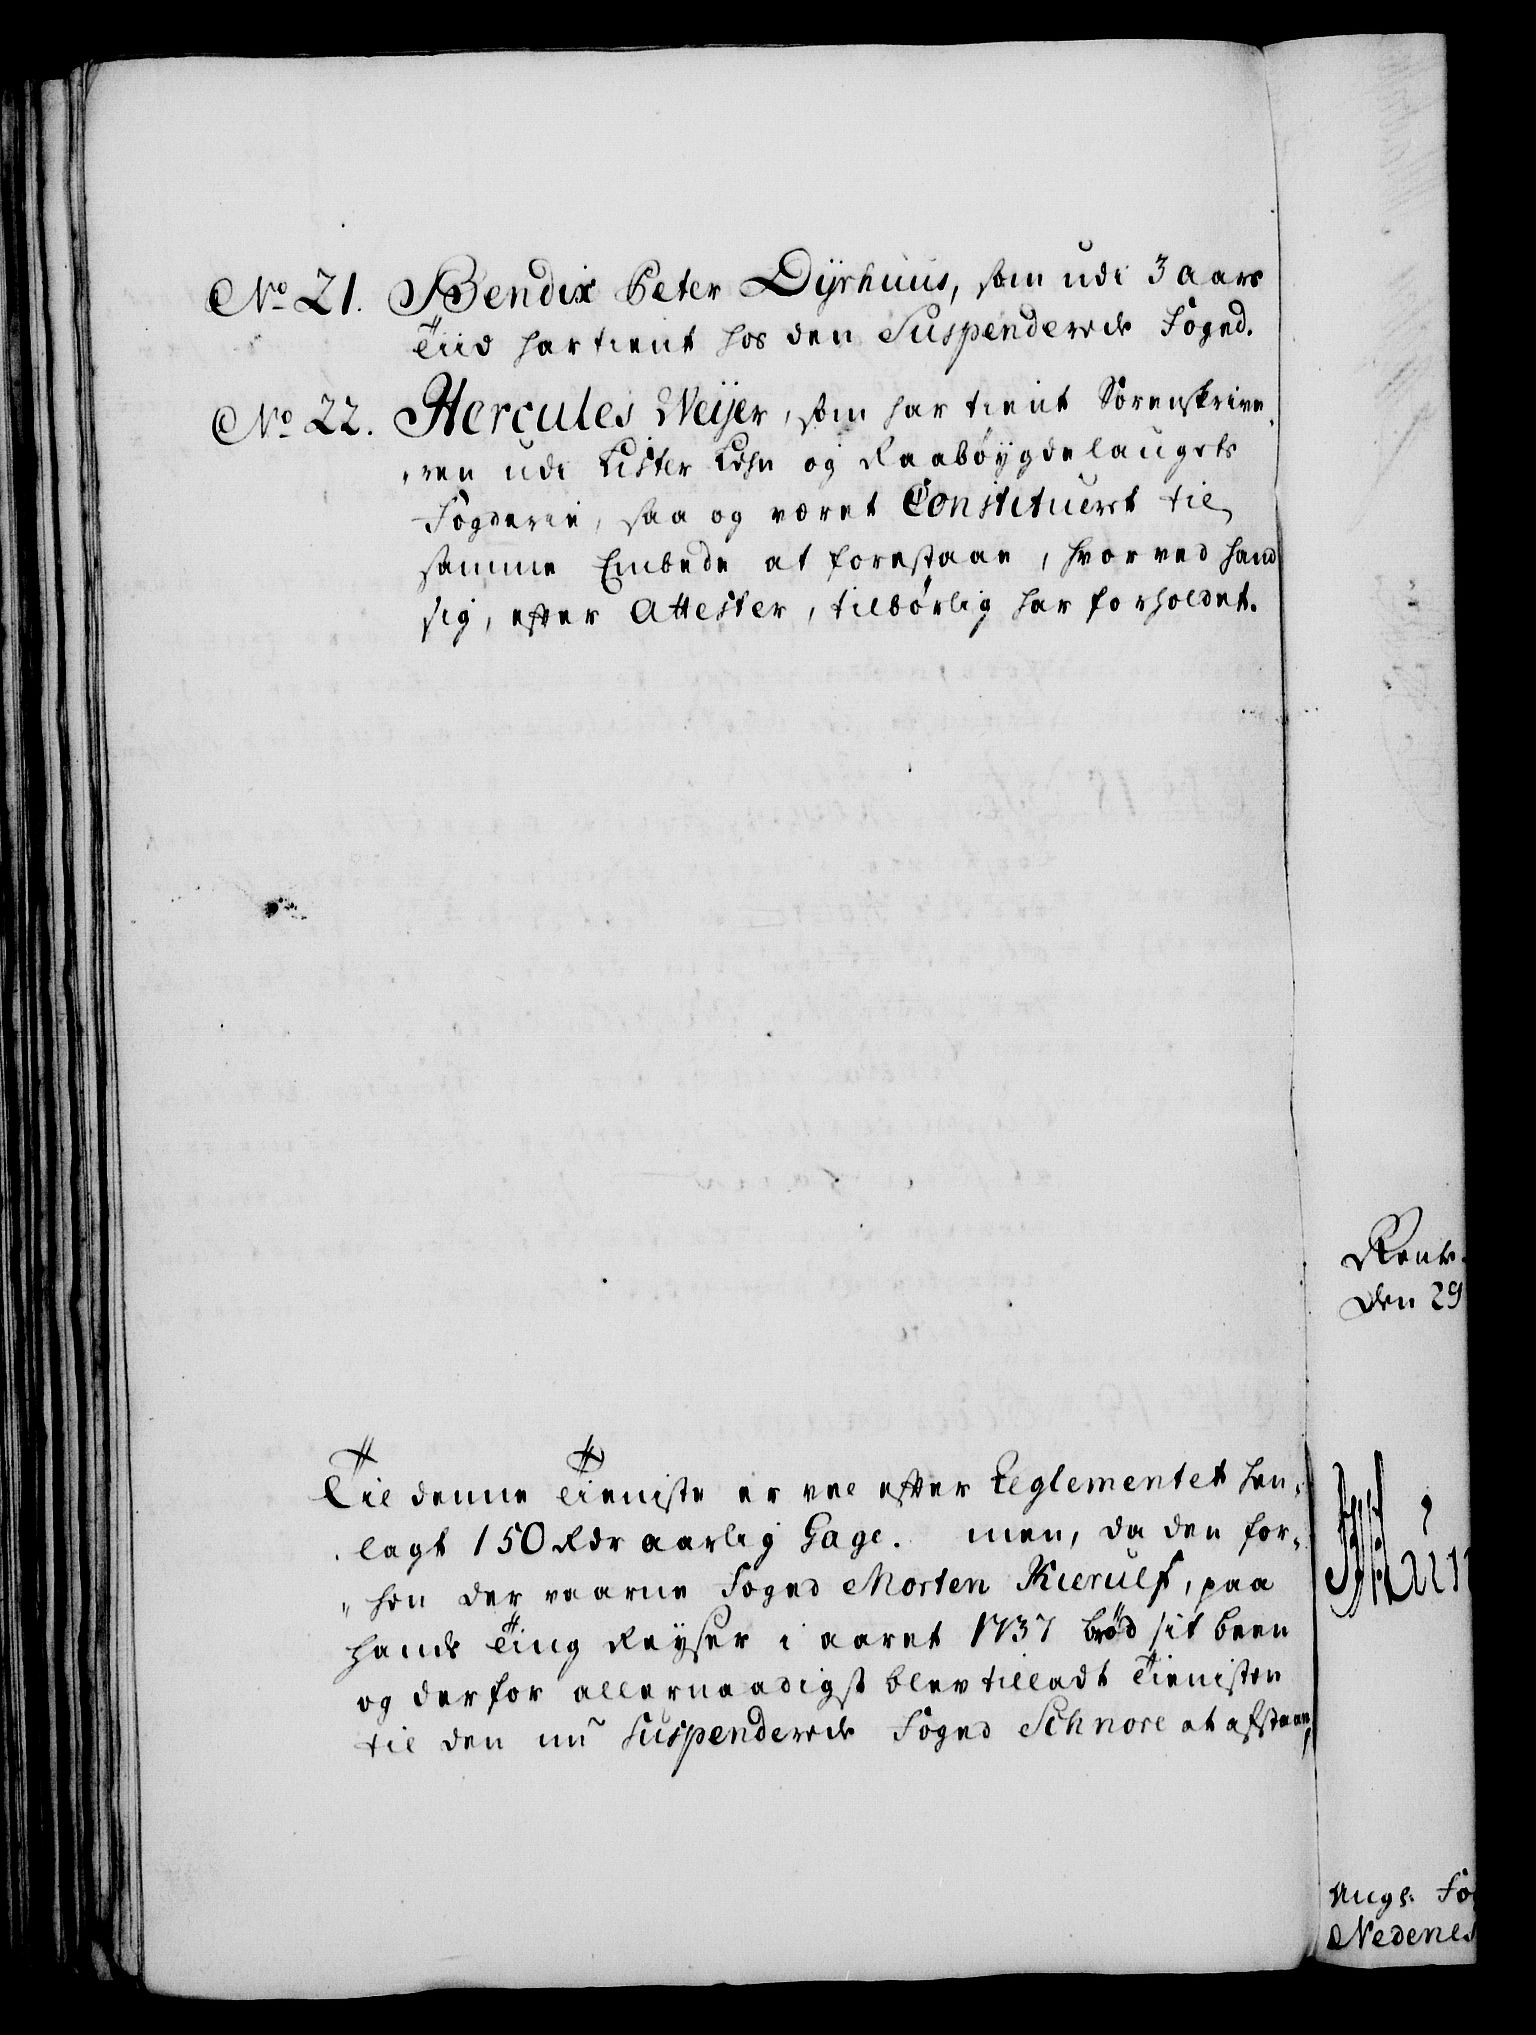 No 21. Bendix Peter Dyrhuus, som udi 3 aars
Tiid har tient hos den Suspenderede Foged.
No 22. Hercules Weijer, som har tient Sorenskrive-
ren udi Lister Lehn og Raabøygdelaugets
Fogderie, saa og været Constitueret til
samme Embede at forestaae, hvorved hand
sig, efter Attester, tilbørlig har forholdet.
Til denne Tieniste er vel efter Reglementet hen-
lagt 150 Rdr aarlig Gage. men, da den for-
hen der værne Foged Morten Kierulf, paa
hands Ting Reyser i aaret 1737 brød sit been
og derfor allernaadigst blev tilladt Tienisten
til den nu Suspenderede Foged Schnore at afstaae,
Rente-
den 29
Ang: Fo
Nedenes